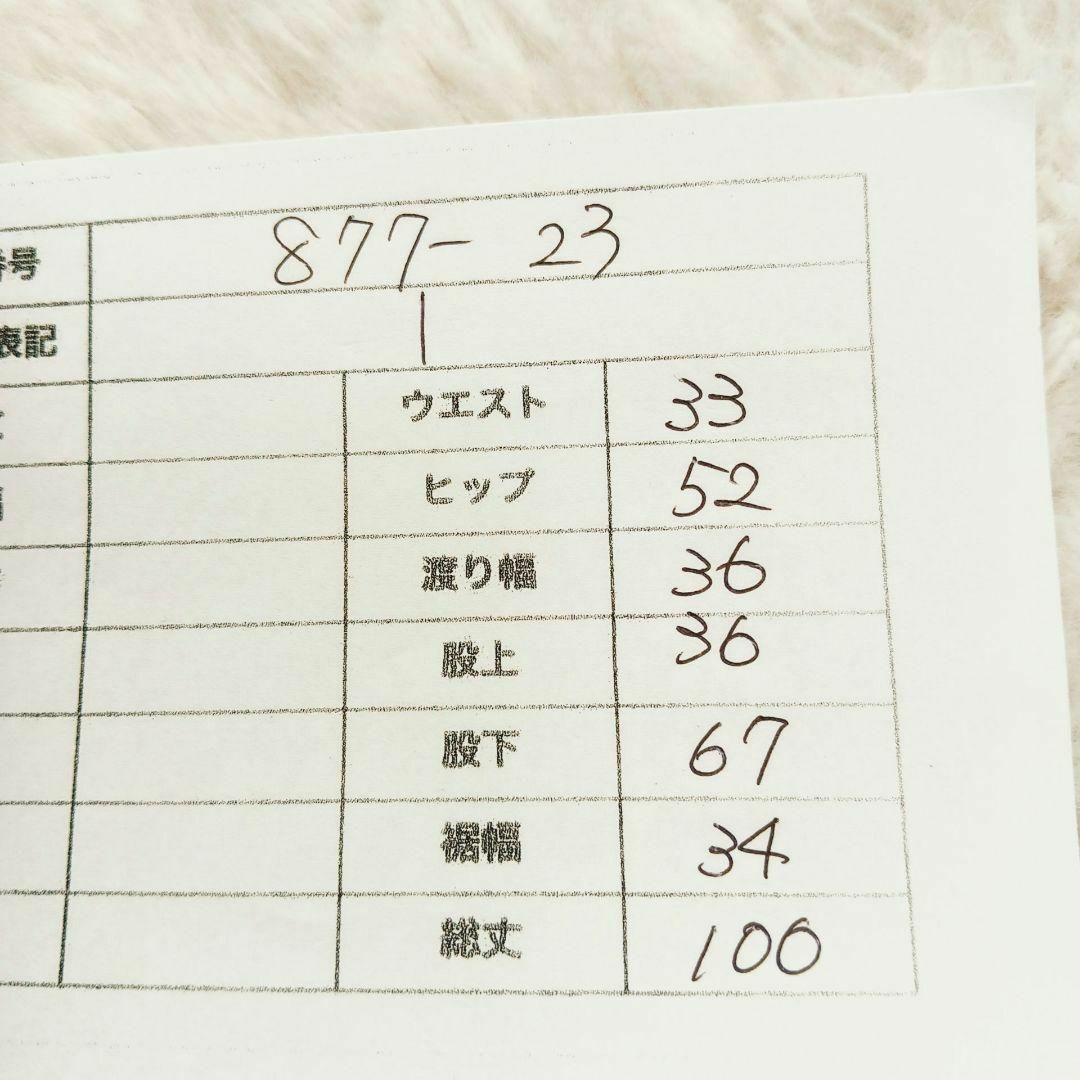 番号 877- 23
表記 |
ウエスト 33
ヒップ 52
渡り幅 36
股上 36
股下 67
裾幅 34
総丈 100